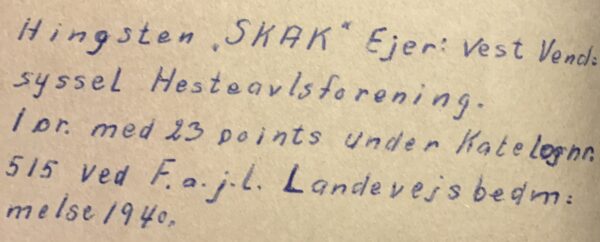 Hingsten „SKAK“ Ejer: Vest Vend:
syssel Hesteavlsforening.
1 pr. med 23 points under Katelognr.
515 ved F.a.j.l. Landevejsbedm:
melse 1940.